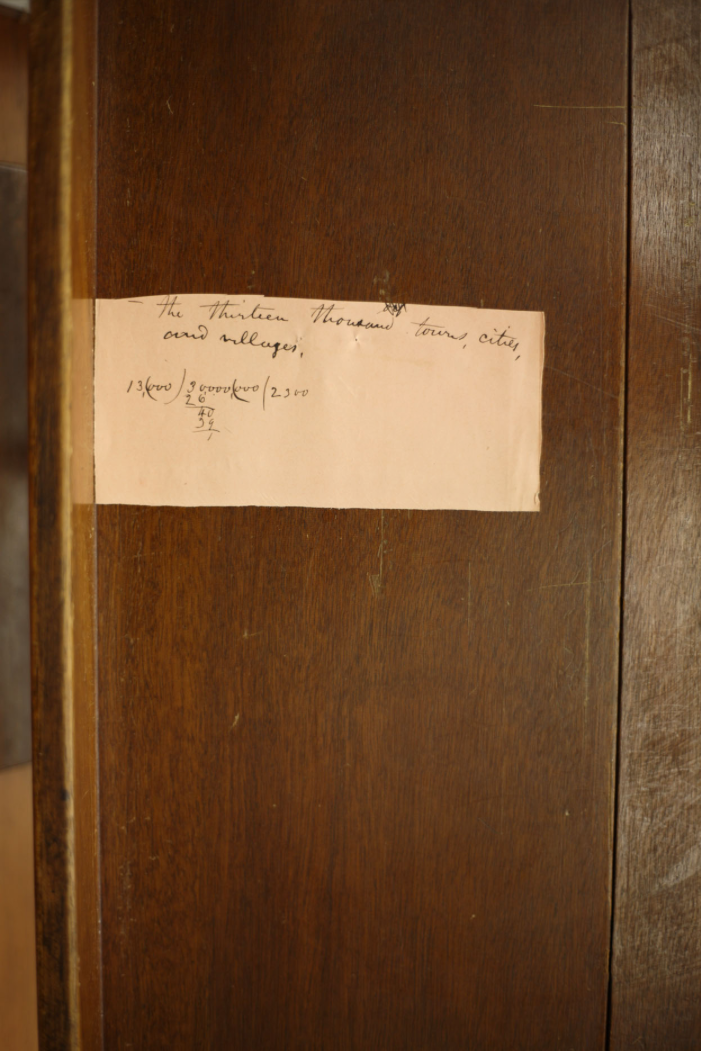 — the thirteen thousand towns, cities,
and villages,
13(000)30000(000(2300
26
40
39
1